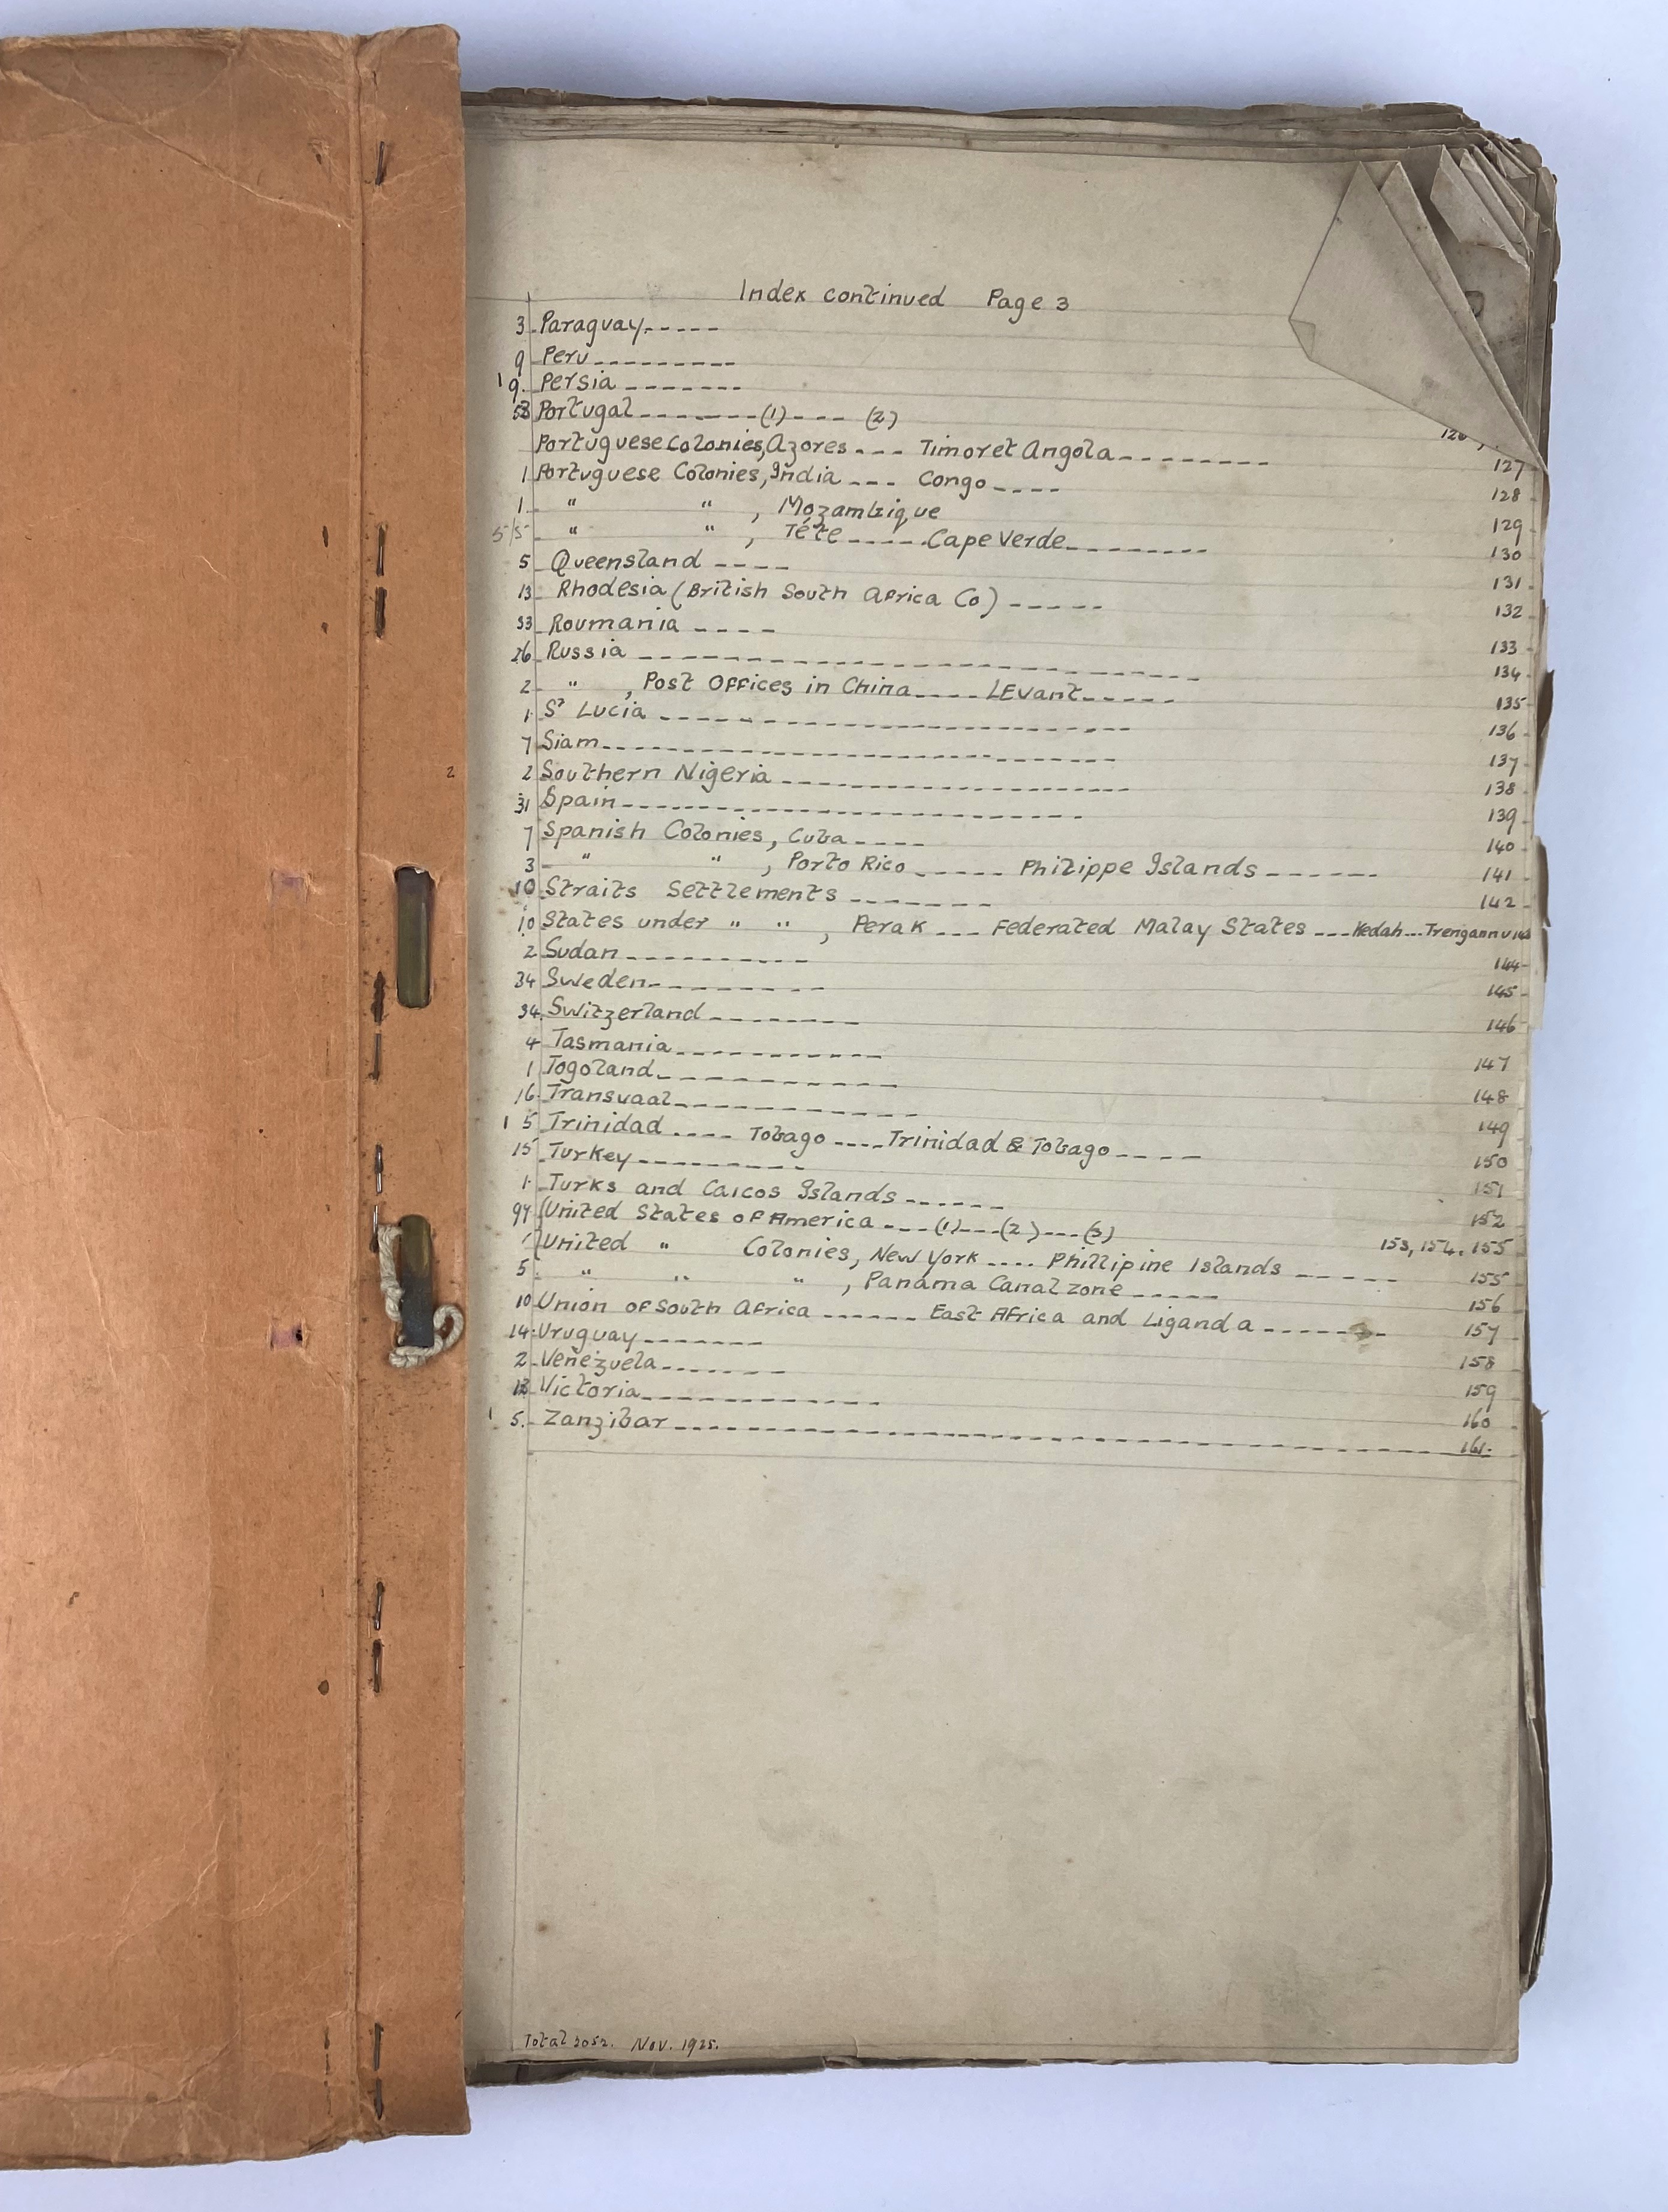 Index continued Page 3
3 Paraguay-----
9 Peru---------
19. Persia -------
58 Portugal-------(1)---- (2)
Portuguese Colonies, Azores --- Timor et Angola--------- 127
1 Portuguese Colonies, India --- Congo---- 128
1 " " , Mozambique 129
5/5 " " , Téte -----Cape Verde--------- 130
5 Queensland ---- 131
13 Rhodesia (British South Africa Co) ----- 132
33 Roumania ---- 133
26 Russia ------------------- 134
2 " , Post Offices in China---- LEvant----- 135
1 St Lucia ---------------- 136
7 Siam------------------ 137
2 Southern Nigeria ------------- 138
31 Spain----------------- 139
7 Spanish Colonies, Cuba---- 140
3 " " , Porto Rico ----- Philippe Islands ------ 141
10 Straits Settlements ------- 142
10 States under " " , Perak --- Federated Malay States ---Kedah...Trengannu 143
2 Sudan --------- 144
34 Sweden-------- 145
34. Switzerland ------- 146
4 Tasmania---------- 147
1 Togoland----------- 148
16. Transvaal----------- 149
15 Trinidad .... Tobago ----Trinidad & Tobago---- 150
15 Turkey --------- 151
1. Turks and Caicos Islands ------ 152
94 United States of America ---(1)---(2)---(3) 153, 154, 155
United " Colonies, New York .... Phillipine Islands ----- 155
5 " " " , Panama Canal zone ----- 156
10 Union of South Africa ------ East Africa and Uganda ------ 157
14. Uruguay------- 158
2 Venezuela------- 159
13 Victoria------------ 160
15. Zanzibar ------------------------ 161.
Total 3052. Nov. 1925.